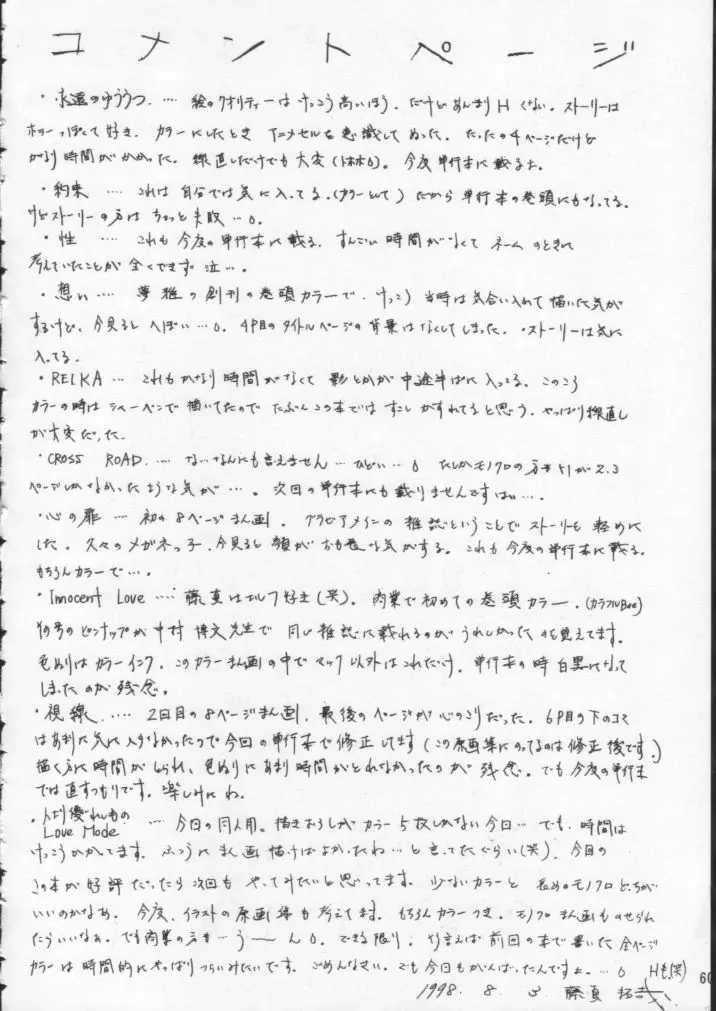 コメントページ
・永遠のゆううつ.‥‥ 絵のクオリティーはけっこう高いほう. だけどあんまりHくない. ストーリーは
ホラーっぽくて好き. カラーにしたときアニメセルを意識してぬった. たったの4ページだけど
かなり時間がかかった. 線直しだけでも大変(トホホ). 今度単行本に載るよ.
・約束 ‥‥ これは自分では気に入ってる.(カラーとして) だから単行本の巻頭にもなってる.
けどストーリーの方はちょっと失敗…
・性 ‥‥ これも今度の単行本に載る. すんごい時間がなくてネームのときに
考えていたことが全くできず泣….
・想い‥‥ 夢雅の創刊の巻頭カラーで. けっこう当時は気合い入れて描いた気が
するけど, 今見るとへぼい… 4P目のタイトルページの背景はなくしてしまった. ・ストーリーは気に
入ってる.
・REIKA … これもかなり時間がなくて影とかが中途半ぱに入ってる. このころ
カラーの時はシャーペンで描いてたのでたぶんこの本ではすこしかすれてると思う. やっぱり線直し
が大変だった.
・CROSS ROAD.‥‥ な…なんにも言えません…ひどい… たしかモノクロの方も 2.3
ページしかなかったような気が…. 次回の単行本にも載りませんですはい….
・心の扉 … 初の8ページまん画. グラビアメインの雑誌ということでストーリーを軽めに
した. 久々のメガネっ子. 今見ると顔がおも長な気がする. これも今度の単行本に載る.
もちろんカラーで….
・Innocent Love ‥‥ 藤真はエルフ好き(笑). 商業で初めての巻頭カラー.(カラフルBee)
その号のピンナップが中村博文先生で同じ雑誌に載れるのがうれしかったのを覚えてます.
色ぬりはカラーインク. このカラーまん画の中でマック以外はこれだけ. 単行本の時白黒になって
しまったのが残念.
・視線.‥‥ 2回目の8ページまん画. 最後のページが心のこりだった. 6P目の下のコマ
はあまり気に入らなかったので今回の単行本で修正してます(この原画集にのってるのは修正後です.)
描く方に時間がとられ, 色ぬりにあまり時間がとれなかったのが残念. でも今度の単行本
では直すつもりです. 楽しみにね.
・人より優れもの
Love Mode … 今日の同人用. 描きおろしがカラー5枚しかない今日… でも, 時間は
けっこうかかってます. ふつうにまん画描けばよかったね…と言ってたぐらい(笑). 今日の
この本が好評だったら次回もやってみたいと思ってます. 少ないカラーと 長めのモノクロどっちが
いいのかなぁ. 今度, イラストの原画集も考えてます. もちろんカラーつき. モノクロまん画ものせられ
たらいいなぁ. でも商業の方も…うーーん. できる限り. そう言えば前回の本で書いた全ページ
カラーは時間的にやっぱりつらいみたいです. ごめんなさい. でも今日もがんばったんですよ.… Hも(笑)
1998. 8. 3 藤真拓哉
60